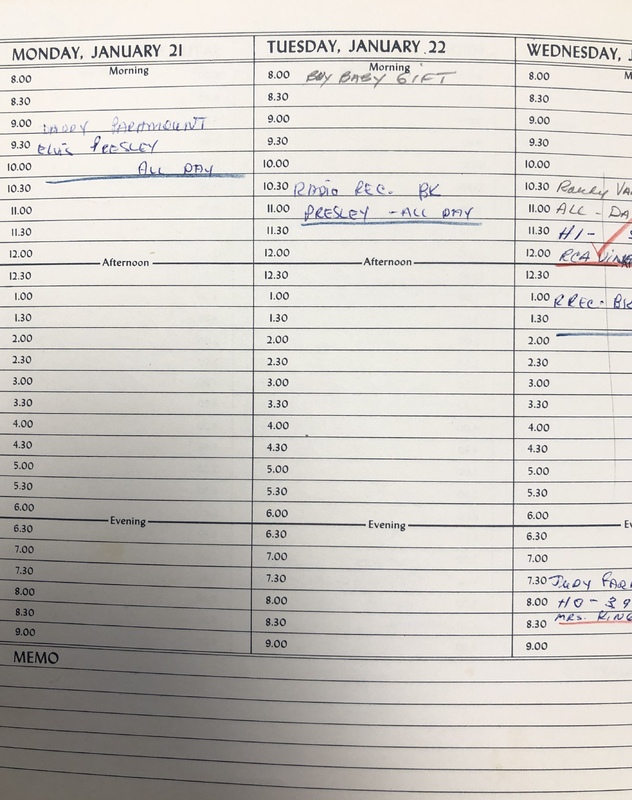 MONDAY, JANUARY 21
Morning
8.00
8.30
9.00 PARAMOUNT
9.30 ELVIS PRESLEY
10.00 ALL DAY
10.30
11.00
11.30
12.00
Afternoon
12.30
1.00
1.30
2.00
2.30
3.00
3.30
4.00
4.30
5.00
5.30
6.00
Evening
6.30
7.00
7.30
8.00
8.30
9.00
TUESDAY, JANUARY 22
Morning
8.00 BUY BABY GIFT
8.30
9.00
9.30
10.00
10.30 RADIO REC. BK
11.00 PRESLEY - ALL DAY
11.30
12.00
Afternoon
12.30
1.00
1.30
2.00
2.30
3.00
3.30
4.00
4.30
5.00
5.30
6.00
Evening
6.30
7.00
7.30
8.00
8.30
9.00
WEDNESDAY, J
M
8.00
8.30
9.00
9.30
10.00
10.30 VA
11.00 ALL - DA
11.30 HI -
12.00 RCA
12.30
1.00 RREC - BK
1.30
2.00
2.30
3.00
3.30
4.00
4.30
5.00
5.30
6.00
Ev
6.30
7.00
7.30 JUDY FAR
8.00 HO - 39
8.30 MRS. KING
9.00
MEMO